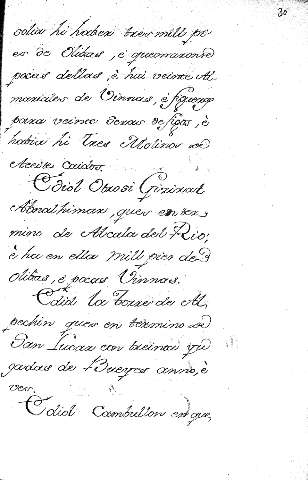 30
solia hi haber tres mill pi-
es de Olibas, è quemaronse
pocas dellas, è hai veinte Al-
marrales de Vinnas, è figueral
para veinte seras de figos, è
habia hi Tres Molinos de
Aceite caidos.
Ediol Otrosi Gizirat
Abnalhimar, que es en ter-
mino de Alcala del Rio;
è ha en ella mill pies de
Olibas, è pocas Vinnas.
Ediol la Torre de Al-
pechin que es en termino de
San Lucar con treinta yu-
gadas de Bueyes anno, è
vez.
Ediol Cambullon en que,